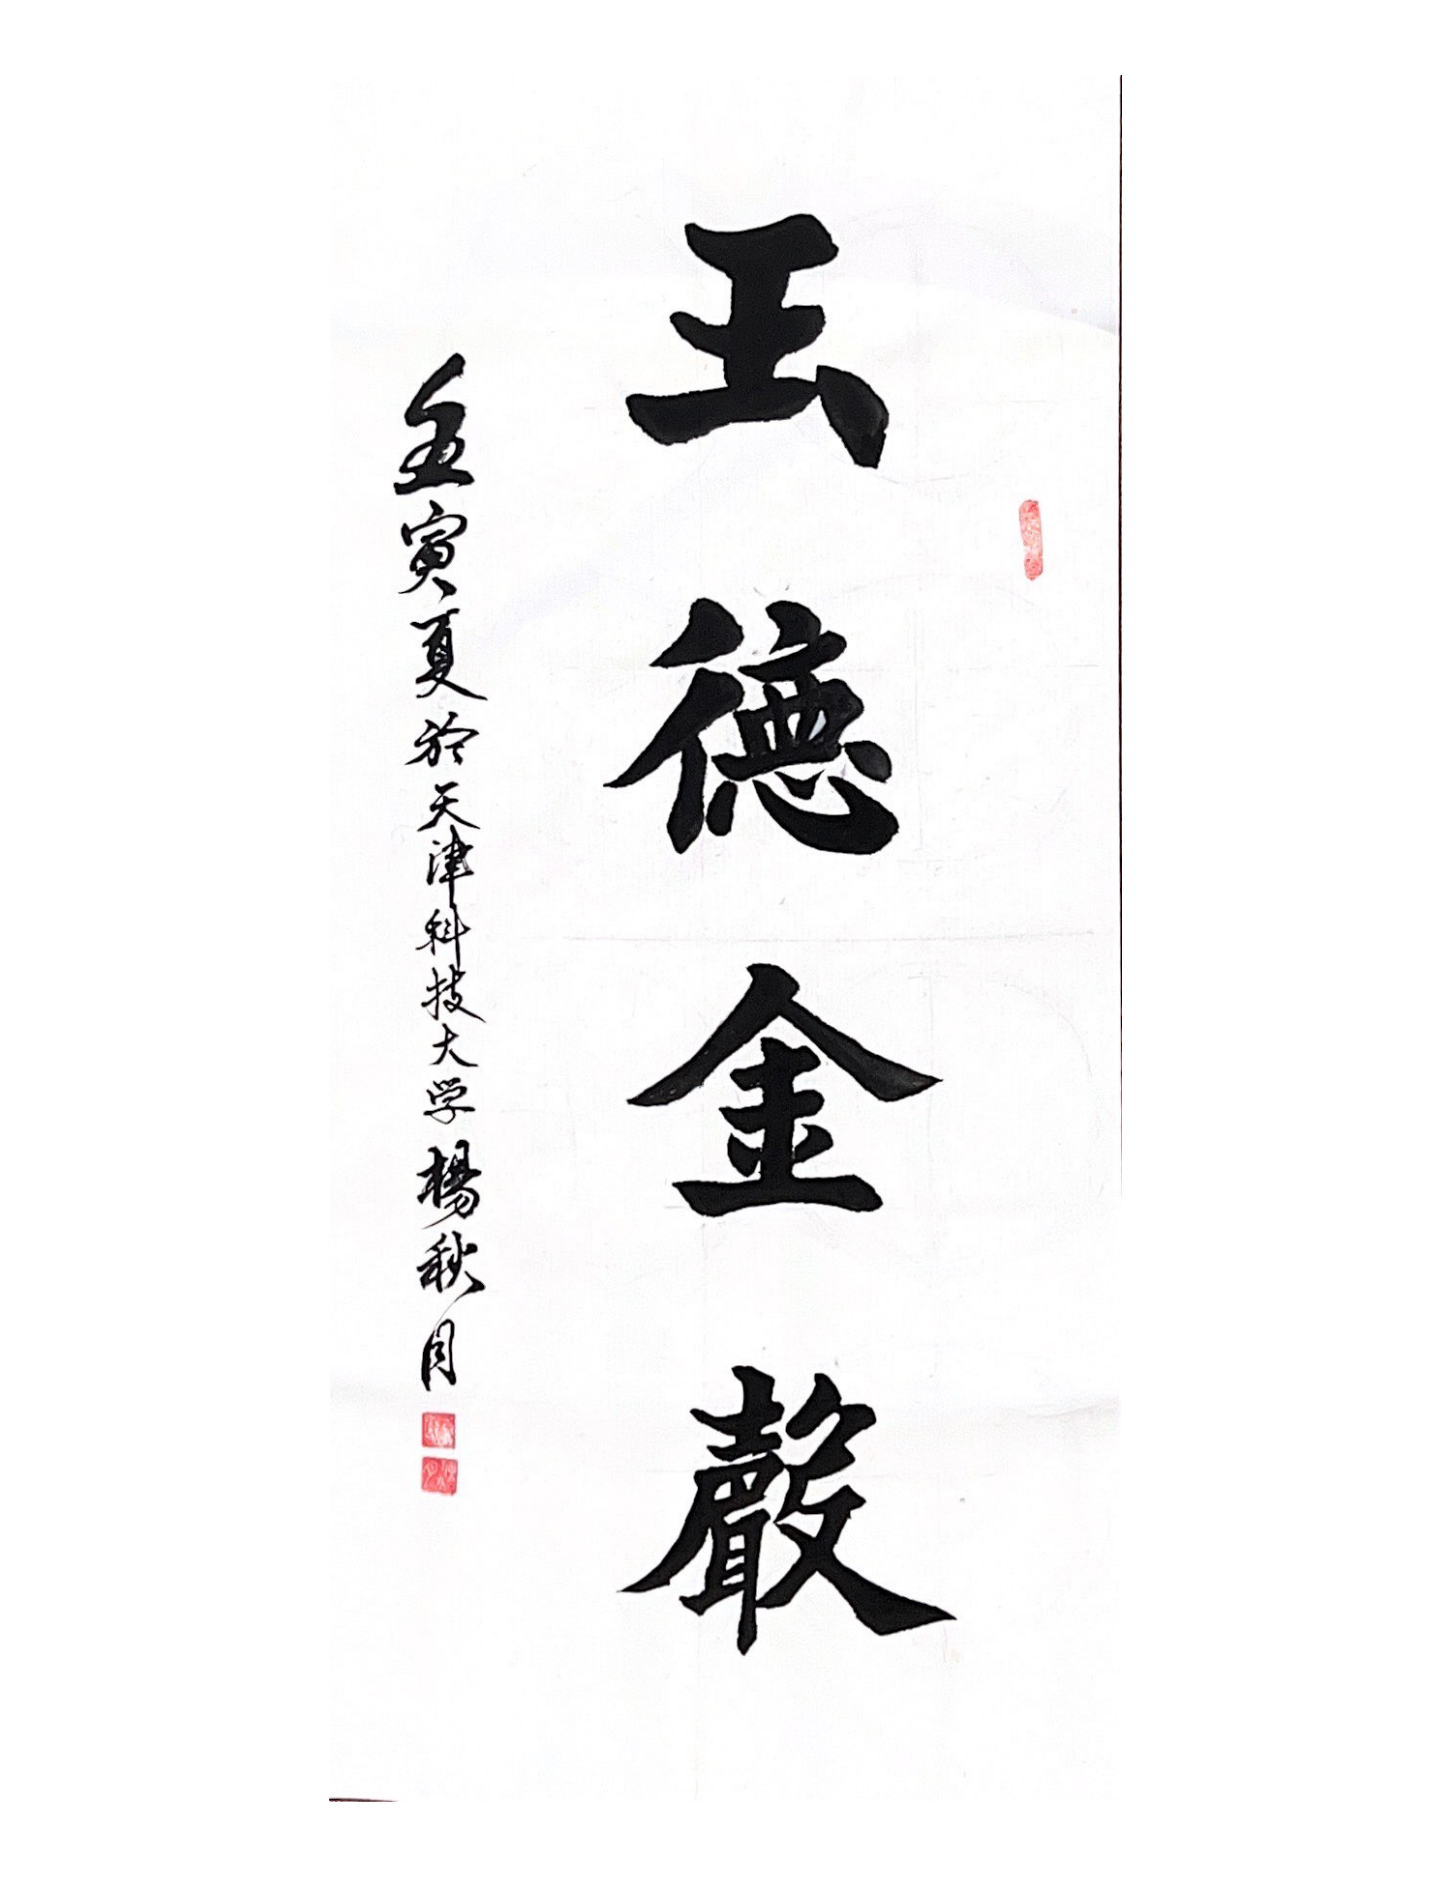 玉德金聲
壬寅夏於天津科技大学楊秋月